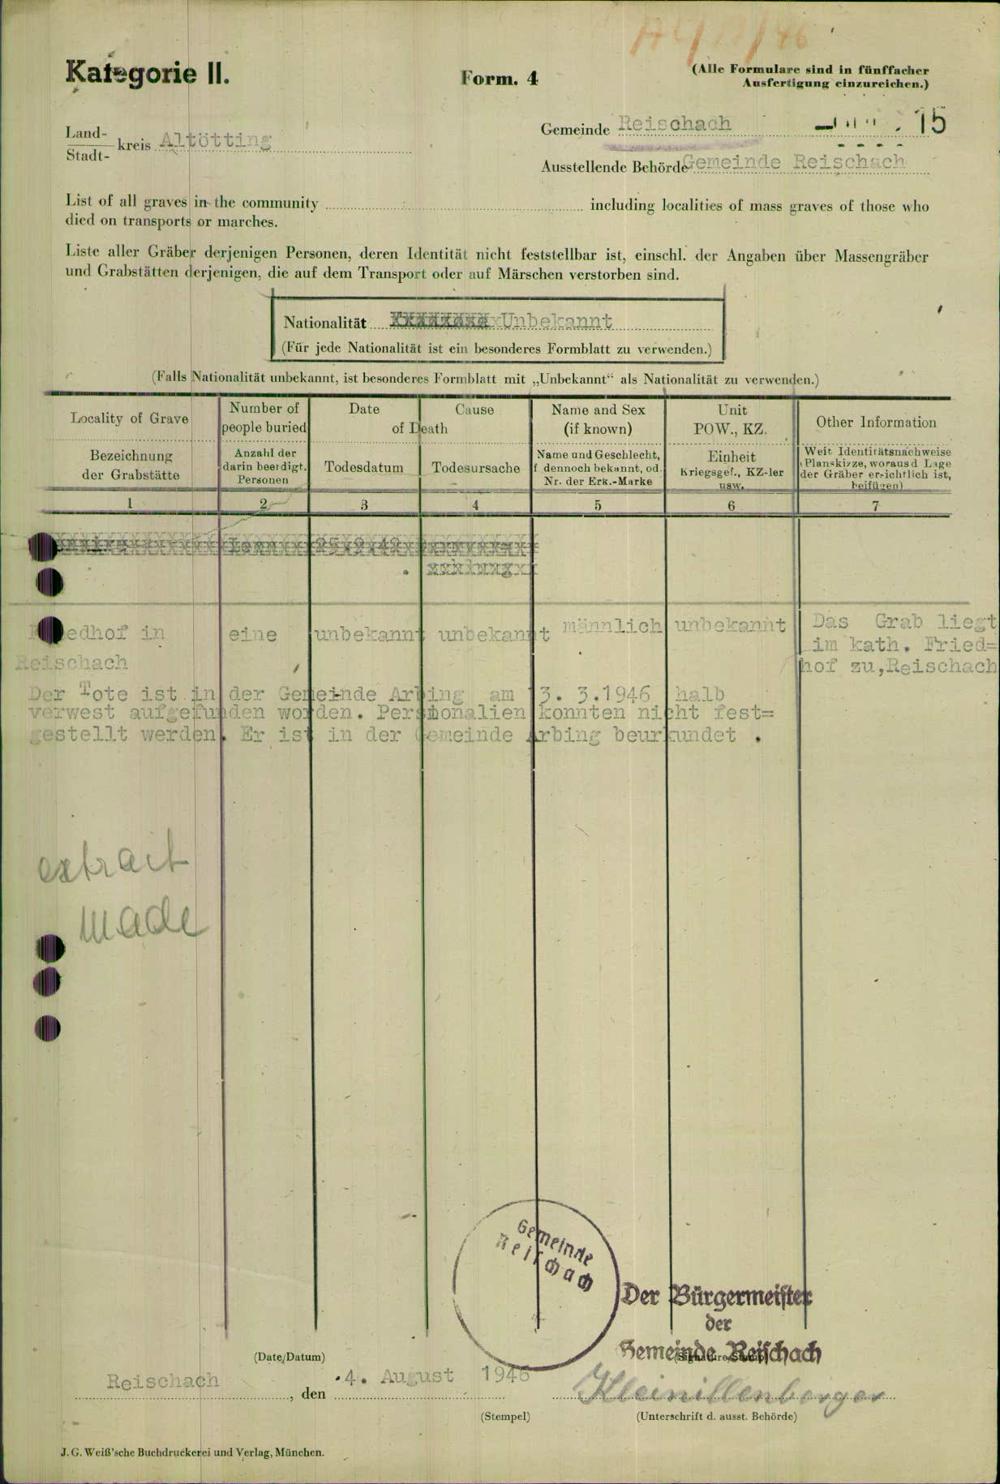 Kategorie II.
Form. 4
(Alle Formulare sind in fünffacher
Ausfertigung einzureichen.)
Land-
Stadt- kreis Altötting
Gemeinde Reischach
15
Ausstellende Behörde Gemeinde Reischach
List of all graves in the community ... including localities of mass graves of those who
died on transports or marches.
Liste aller Gräber derjenigen Personen, deren Identität nicht feststellbar ist, einschl. der Angaben über Massengräber
und Grabstätten derjenigen, die auf dem Transport oder auf Märschen verstorben sind.
Nationalität Unbekannt
(Für jede Nationalität ist ein besonderes Formblatt zu verwenden.)
(Falls Nationalität unbekannt, ist besonderes Formblatt mit „Unbekannt“ als Nationalität zu verwenden.)
Locality of Grave
Bezeichnung
der Grabstätte
Number of
people buried
Anzahl der
darin beerdigt.
Personen
Date
Cause
of Death
Todesdatum
Todesursache
Name and Sex
(if known)
Name und Geschlecht,
f dennoch bekannt, od.
Nr. der Erk.-Marke
Unit
POW., KZ.
Einheit
Kriegsgef., KZ-ler
usw.
Other Information
Weit Identitätsnachweise
(Planskizze, woraus d Lage
der Gräber ersichtlich ist,
beifügen)
1 2 3 4 5 6 7
25.9.42
edhof in
Reischach
eine
unbekannt
unbekannt
männlich
unbekannt
Das Grab liegt
im kath. Fried=
hof zu,Reischach
Der Tote ist in der Gemeinde Arbing am 3. 3.1946 halb
verwest aufgefunden worden. Personalien konnten nicht fest=
gestellt werden. Er ist in der Gemeinde Arbing beurkundet .
extrait
made
Gemeinde
Reischach
Der Bürgermeister
der
Gemeinde Reischach
(Date/Datum)
Reischach, den 4. August 1946
Kleinillenberger
(Stempel)
(Unterschrift d. ausst. Behörde)
J. G. Weiß'sche Buchdruckerei und Verlag, München.